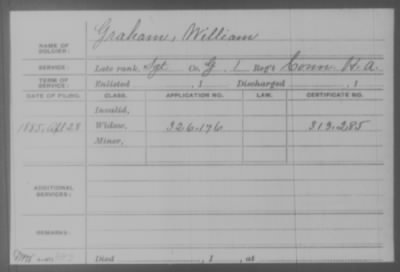 Graham, William
NAME OF SOLDIER:
SERVICE: Late rank, Sgt Co. G, 1 Reg't Conn. H. A.
TERM OF SERVICE: Enlisted , 1 Discharged , 1
DATE OF FILING. CLASS. APPLICATION NO. LAW. CERTIFICATE NO.
Invalid,
1885, Apl 28 Widow, 326.176 313.285
Minor,
ADDITIONAL SERVICES:
REMARKS:
Died , 1 , at